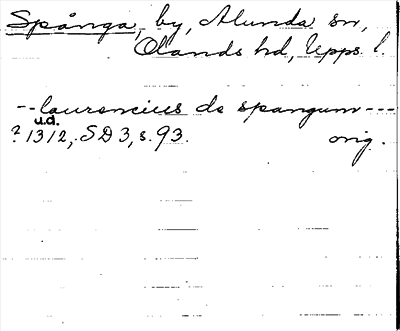 Spånga, by, Alunda sn,
Olands hd, Upps l.
-- laurencius de spangum ---
u.d.
? 1312, SD 3, s. 93. orig.